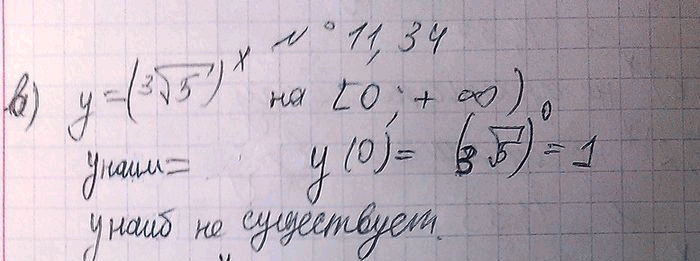 № 11,34
в) y = (³√5)ˣ на [0; + ∞)
yнаим = y(0) = (³√5)⁰ = 1
yнаиб не существует.